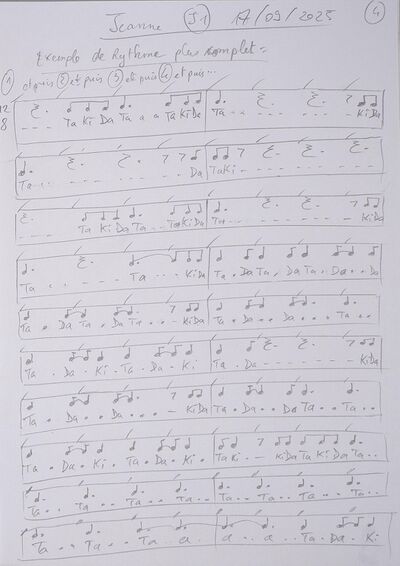 Jeanne S1 17/09/2025 4
Exemple de Rythme plus complet =
1 et puis 2 et puis 3 et puis 4 et puis...
12
8
- - - - Ta Ki Da Ta a a Ta Ki Da Ta - - - - - - - - - Ki Da
Ta - - - - - - - - - Da Ta Ki - - - - - - - - - -
- - - Ta Ki Da Ta - - Ta Ki Da Ta - - - - - - - - - Ki Da
Ta . . - - - Ta . . . Ki Da Ta . Da Ta . Da Ta . Da . . Da
Ta . Da Ta . Da Ta . . - Ki Da Ta . Da . . Da . . . Ta . .
Ta . Da . Ki . Ta . Da . Ki . Ta . Da - - - - - - - Ki Da
Ta . Da . . Da . . . - Ki Da Ta . Da . . Da Ta . . Ta . .
Ta . Da . Ki . Ta . Da . Ki . Ta Ki . - Ki Da Ta Ki Da Ta . .
Ta . . Ta . . Ta . . Ta . . Ta . . Ta . . Ta . . Ta . .
Ta . . Ta . . Ta a . . a . . a . . Ta . Da . Ki